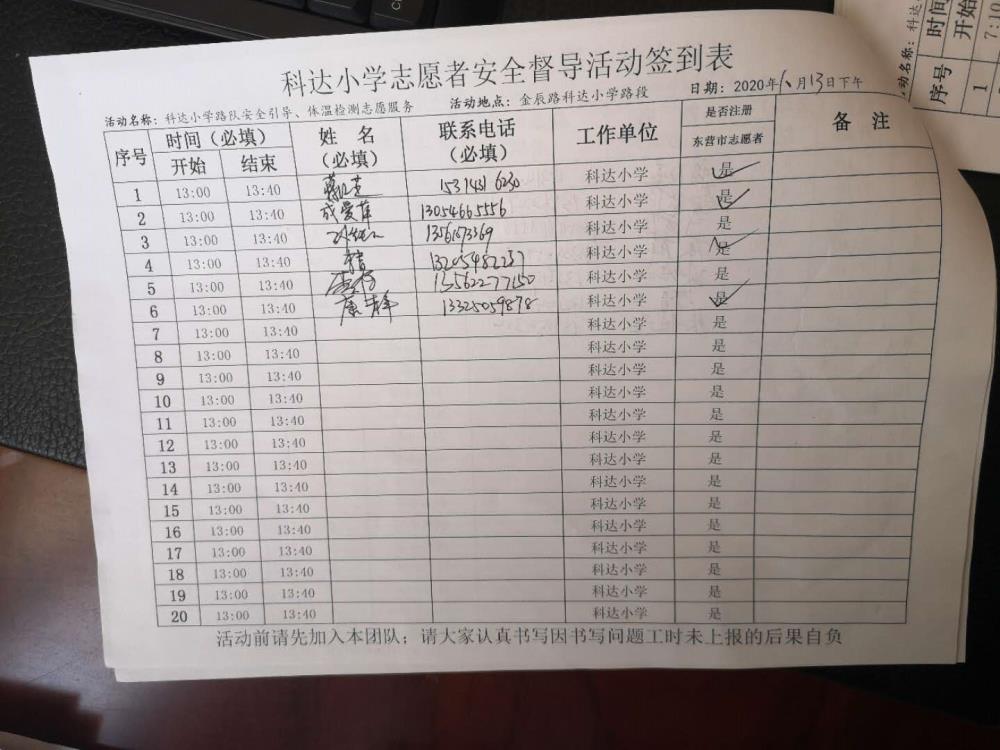 科达小学志愿者安全督导活动签到表
活动名称：科达小学路队安全引导、体温检测志愿服务 活动地点：金辰路科达小学路段 日期：2020年6月13日下午
序号 时间（必填） 姓 名（必填） 联系电话（必填） 工作单位 是否注册东营市志愿者 备 注
开始 结束
1 13:00 13:40 科达小学 是
2 13:00 13:40 成曼萍 13054665556 科达小学 是
3 13:00 13:40 科达小学 是
4 13:00 13:40 科达小学 是
5 13:00 13:40 13562277150 科达小学 是
6 13:00 13:40 康静 13325059878 科达小学 是
7 13:00 13:40 科达小学 是
8 13:00 13:40 科达小学 是
9 13:00 13:40 科达小学 是
10 13:00 13:40 科达小学 是
11 13:00 13:40 科达小学 是
12 13:00 13:40 科达小学 是
13 13:00 13:40 科达小学 是
14 13:00 13:40 科达小学 是
15 13:00 13:40 科达小学 是
16 13:00 13:40 科达小学 是
17 13:00 13:40 科达小学 是
18 13:00 13:40 科达小学 是
19 13:00 13:40 科达小学 是
20 13:00 13:40 科达小学 是
活动前请先加入本团队；请大家认真书写因书写问题工时未上报的后果自负
活动名称：科达
序号 时间
开始
1 7:10